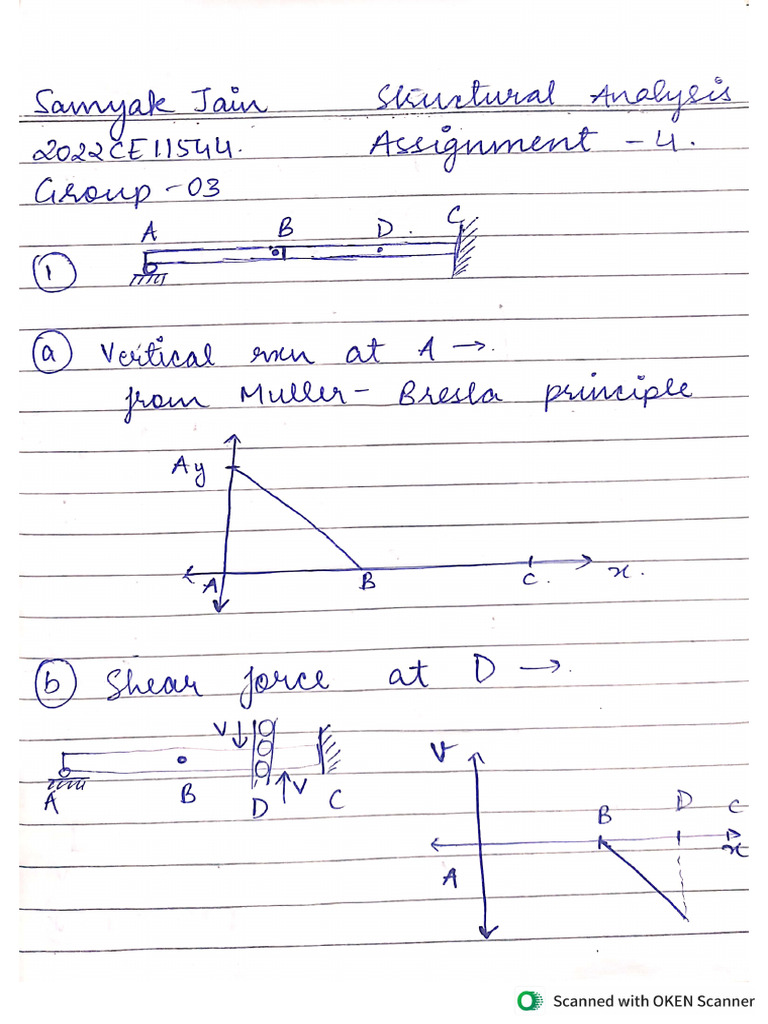 Samyak Jain Structural Analysis
2022CE11544. Assignment - 4.
Group - 03
A B D. C
1
a Vertical rxn at A →.
from Muller - Bresla principle
Ay
A B C. x.
b Shear force at D →.
V↓ V
A B D ↑V C
B D C
A x
Scanned with OKEN Scanner